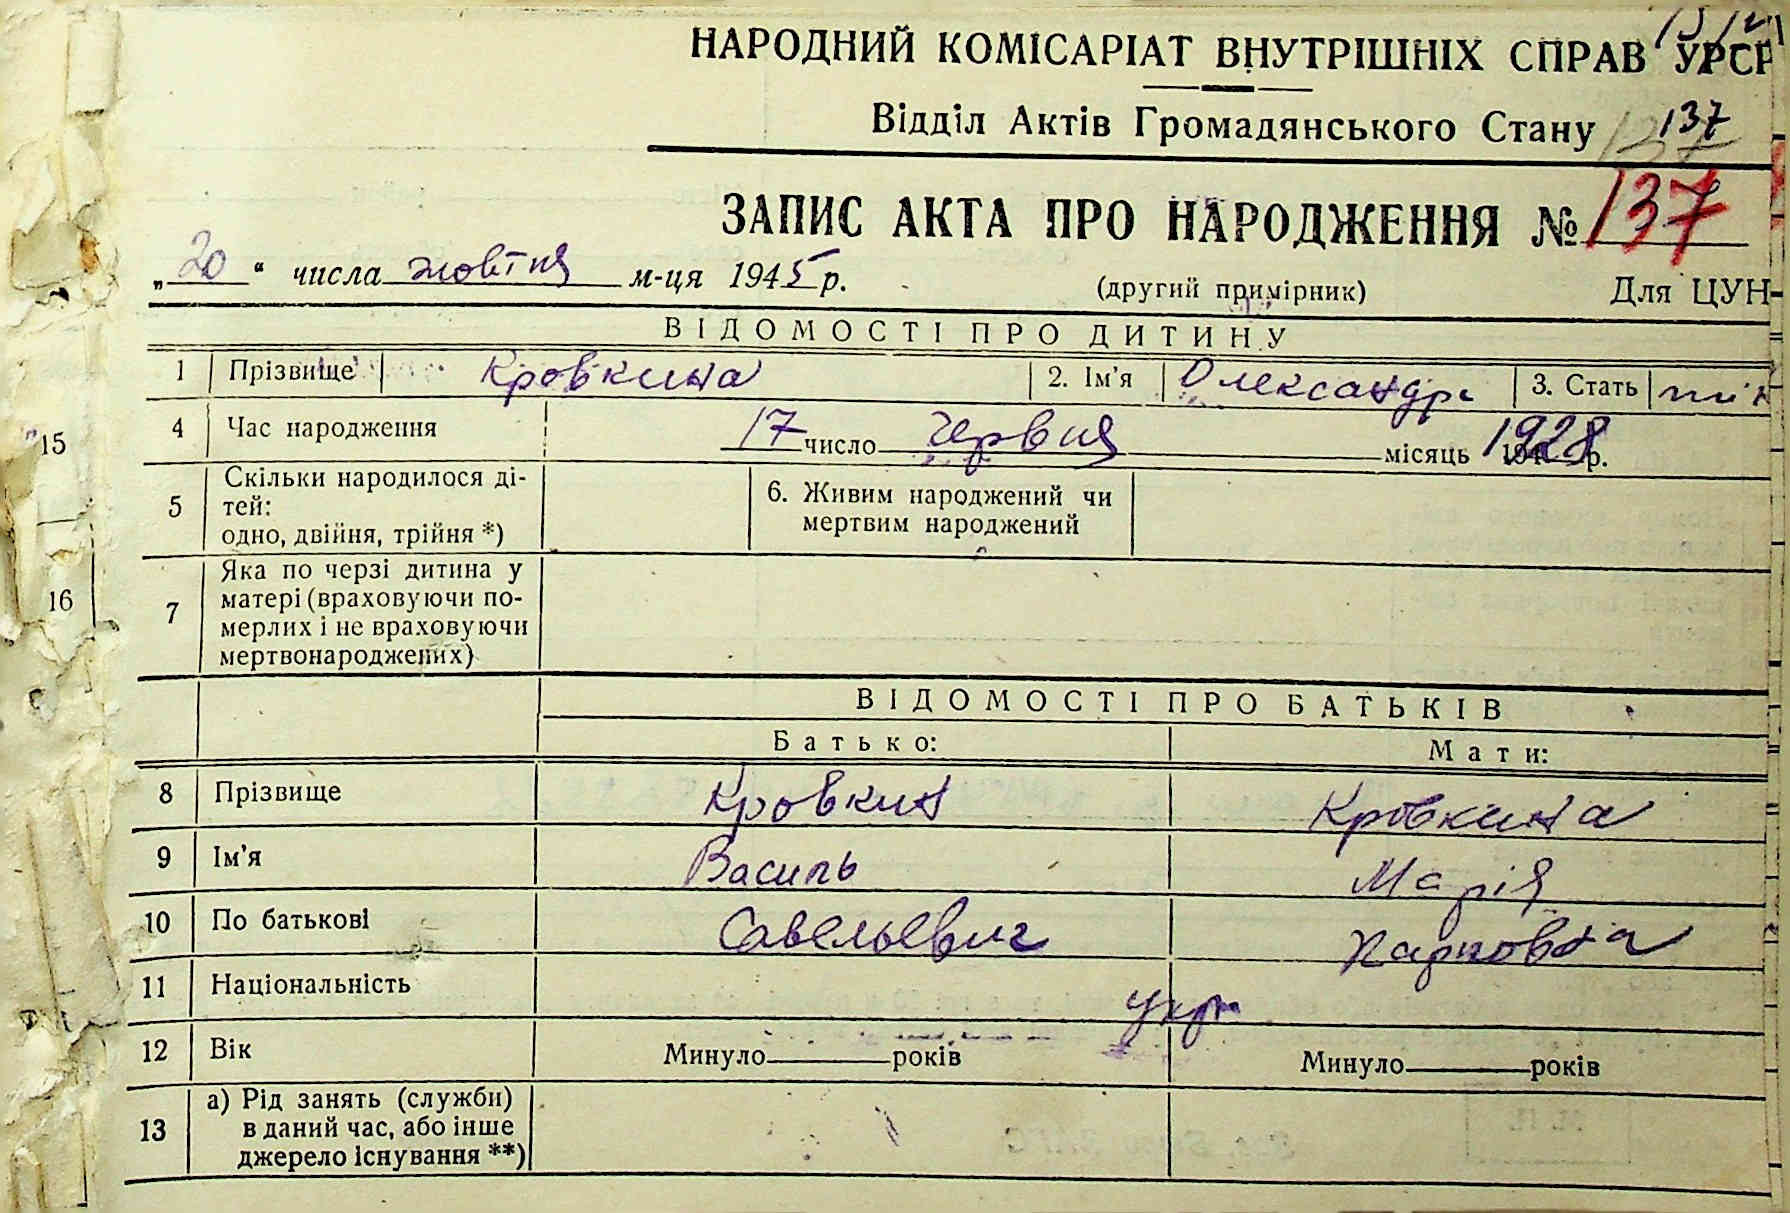 НАРОДНИЙ КОМІСАРІАТ ВНУТРІШНІХ СПРАВ УРСР
Відділ Актів Громадянського Стану 137
137
ЗАПИС АКТА ПРО НАРОДЖЕННЯ № 137
„20“ числа жовтня м-ця 1945 р.
(другий примірник) Для ЦУН
ВІДОМОСТІ ПРО ДИТИНУ
1 Прізвище Кровкина 2. Ім'я Олександра 3. Стать жін
4 Час народження 17 число червня місяць 1928 р.
15
5 Скільки народилося ді-
тей:
одно, двійня, трійня *)
6. Живим народжений чи
мертвим народжений
16
7 Яка по черзі дитина у
матері (враховуючи по-
мерлих і не враховуючи
мертвонароджених)
ВІДОМОСТІ ПРО БАТЬКІВ
Батько: Мати:
8 Прізвище Кровкин Кровкина
9 Ім'я Василь Марія
10 По батькові Савельевич Карповна
11 Національність укр
12 Вік Минуло років Минуло років
13 а) Рід занять (служби)
в даний час, або інше
джерело існування **)
М. П.